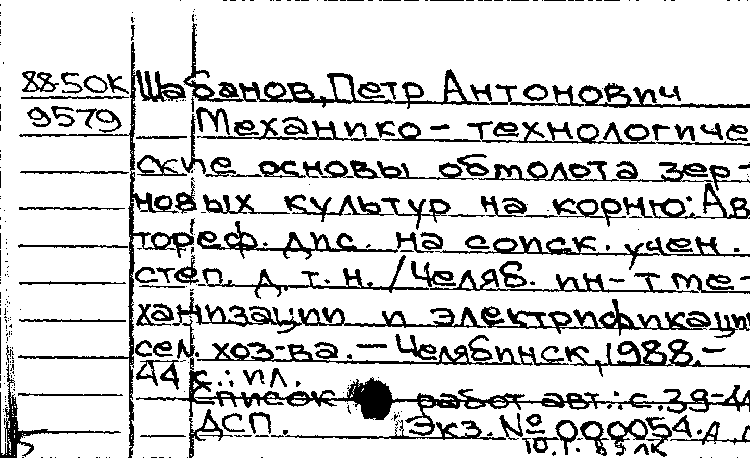 88-50К Шабанов, Петр Антонович
9579 Механико-технологиче
ские основы обмолота зер-
новых культур на корню: Ав
тореф. дис. на соиск. учен.
степ. д. т. н. / Челяб. ин-т ме-
ханизации и электрификации
сел. хоз-ва. — Челябинск, 1988. —
44 с.: ил.
Список работ авт.: с. 39-44
ДСП. Экз. № 000054.